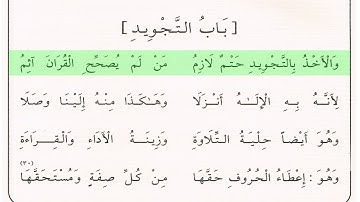 [ بَابُ التَّجْوِيدِ ]
وَالْأَخْذُ بِالتَّجْوِيدِ حَتْمٌ لَازِمُ مَنْ لَمْ يُصَحِّحِ الْقُرَانَ آثِمُ
لِأَنَّهُ بِهِ الْإِلَٰهُ أَنْزَلَا وَهَٰكَذَا مِنْهُ إِلَيْنَا وَصَلَا
وَهُوَ أَيْضاً حِلْيَةُ التِّلَاوَةِ وَزِينَةُ الْأَدَاءِ وَالْقِرَاءَةِ
وَهُوَ : إِعْطَاءُ الْحُرُوفِ حَقَّهَا مِنْ كُلِّ صِفَةٍ وَمُسْتَحَقَّهَا (٣٠)